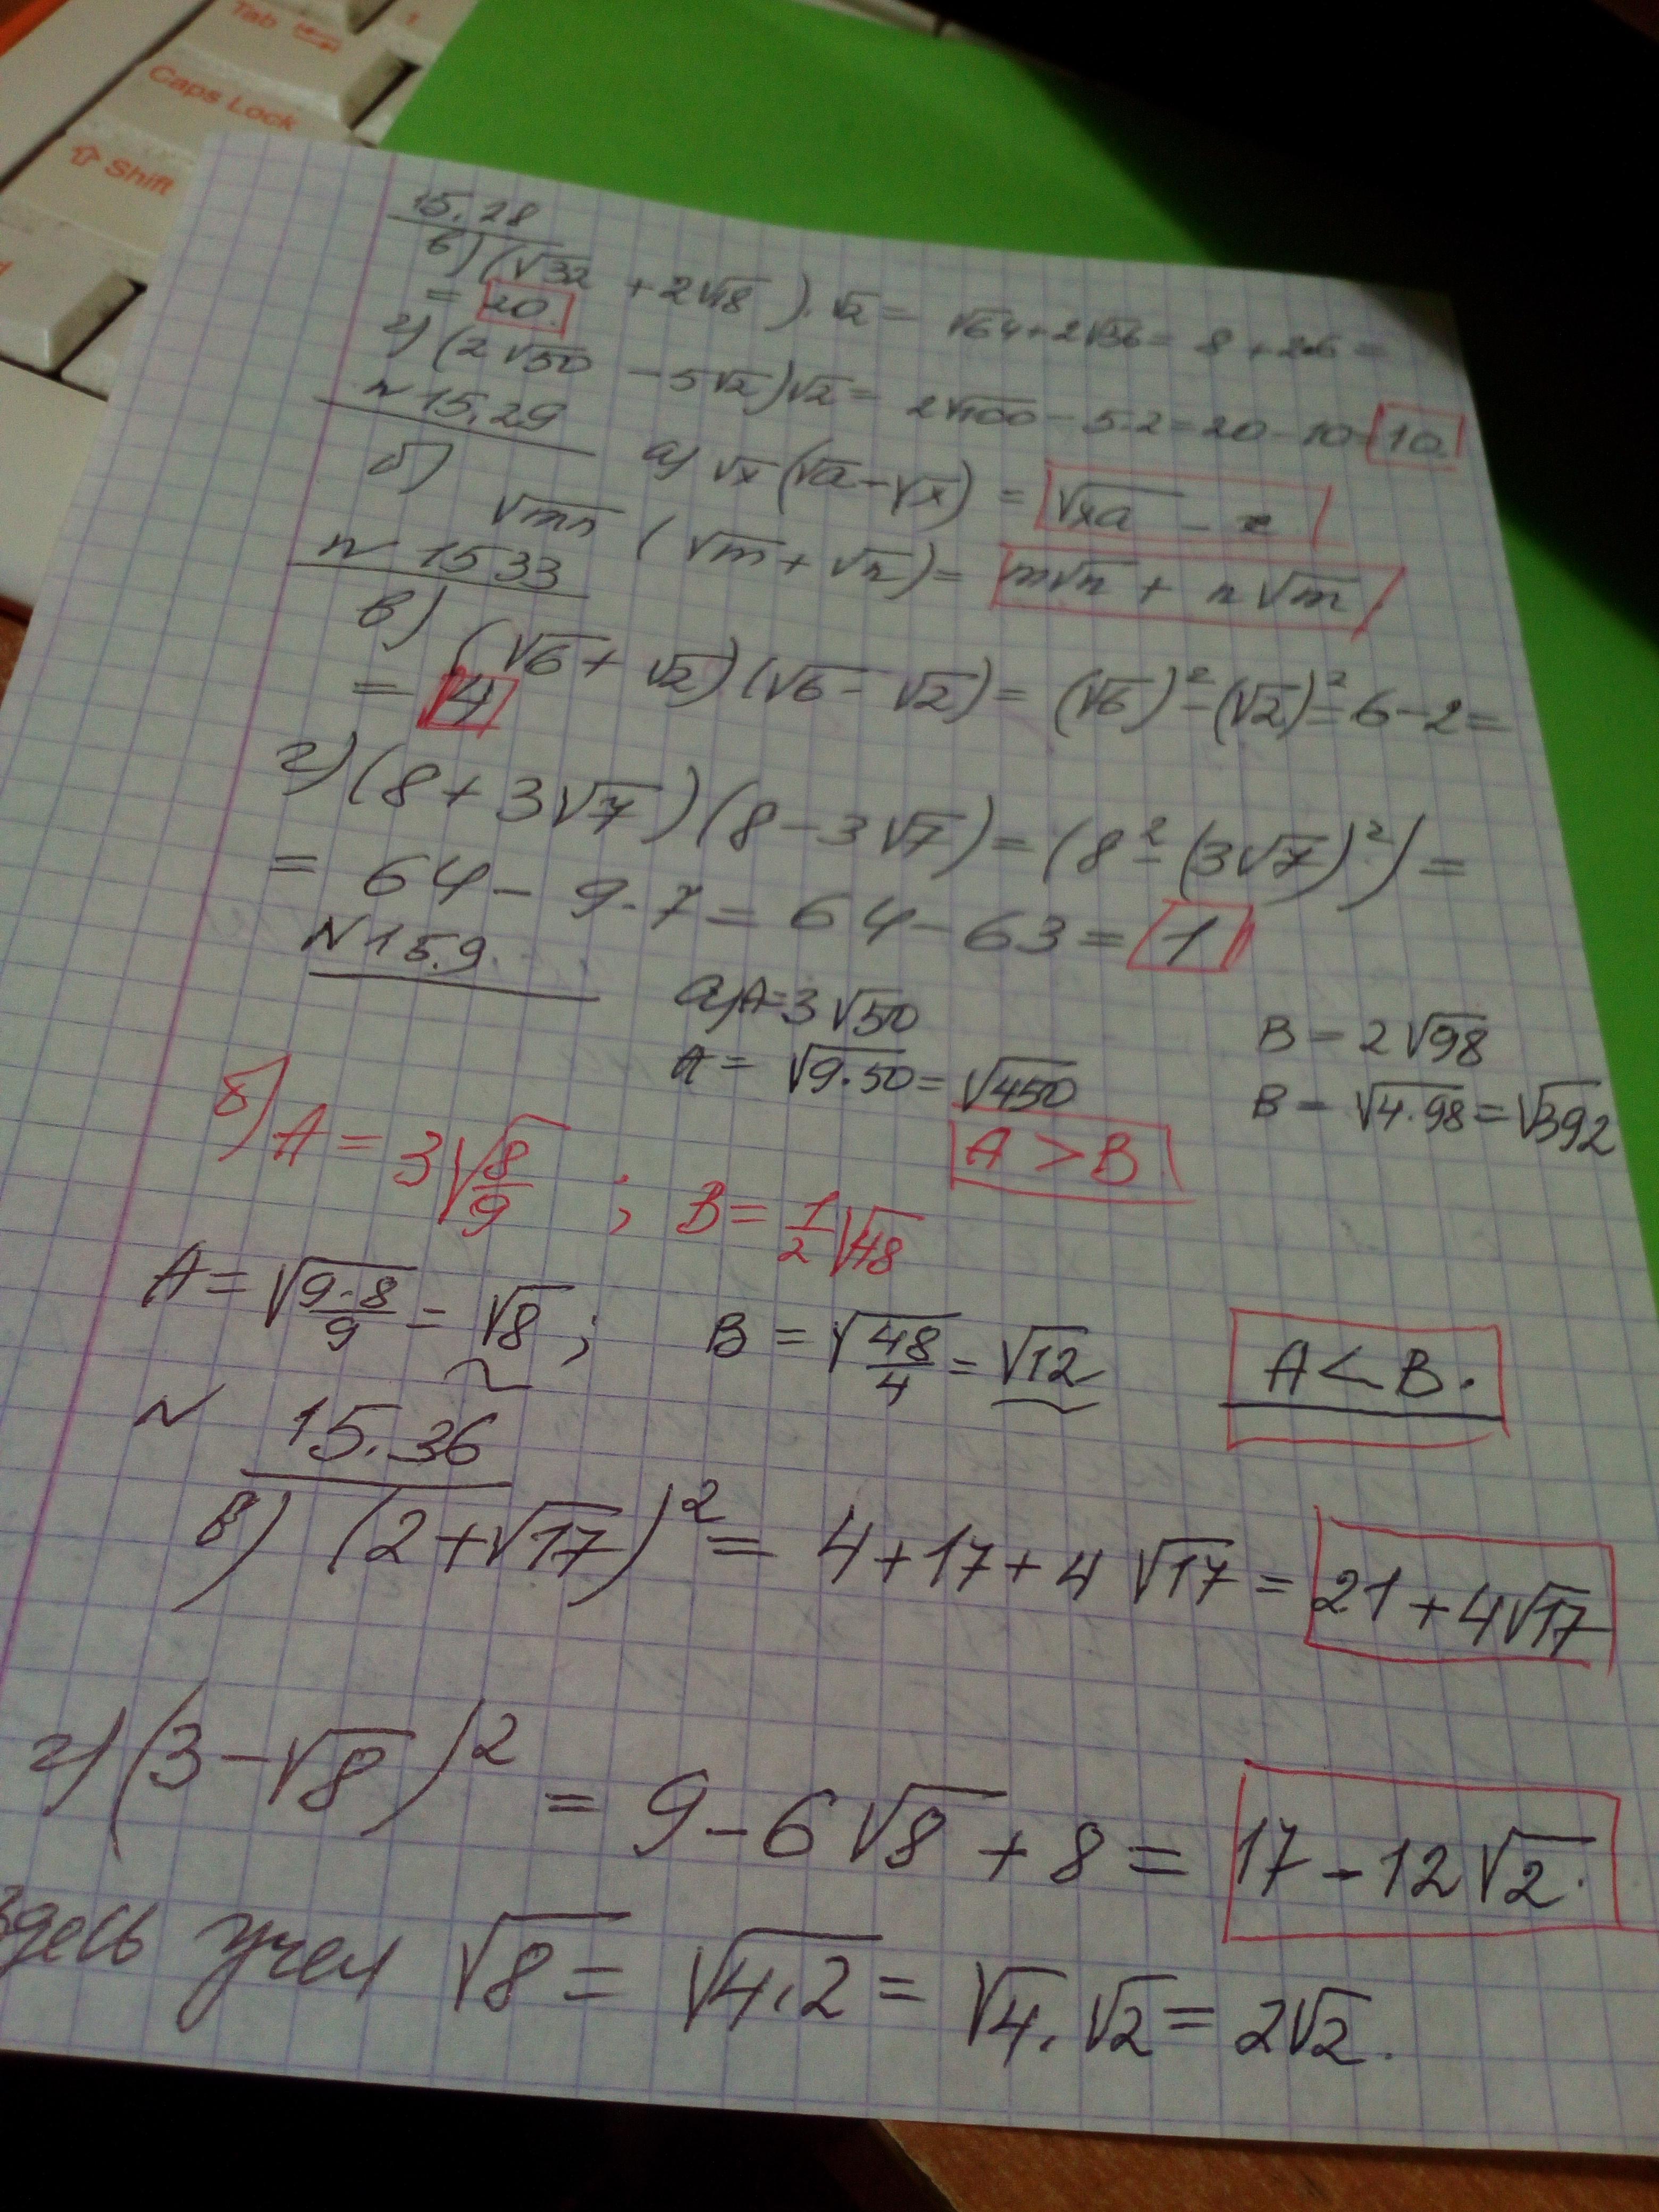 Tab
1
Caps Lock
Shift
15.28
в) (√32 + 2√18) · √2 = √64 + 2√36 = 8 + 2·6 =
= 20.
г) (2√50 - 5√2)√2 = 2√100 - 5·2 = 20 - 10 = 10.
N 15.29
а) √x (√a - √x) = √xa - x
б) √mn (√m + √n) = m√n + n√m.
N 1533
в) (√6 + √2)(√6 - √2) = (√6)² - (√2)² = 6 - 2 =
= 4
г) (8 + 3√7)(8 - 3√7) = (8² - (3√7)²) =
= 64 - 9·7 = 64 - 63 = 1
N 15.9
а) A = 3√50 B = 2√98
A = √9·50 = √450 B = √4·98 = √392
A > B.
б) A = 3√8/9 ; B = 1/2 √48
A = √9·8/9 = √8 ; B = √48/4 = √12 A < B.
N 15.36
в) (2 + √17)² = 4 + 17 + 4√17 = 21 + 4√17
г) (3 - √8)² = 9 - 6√8 + 8 = 17 - 12√2.
Здесь учел √8 = √4·2 = √4·√2 = 2√2.